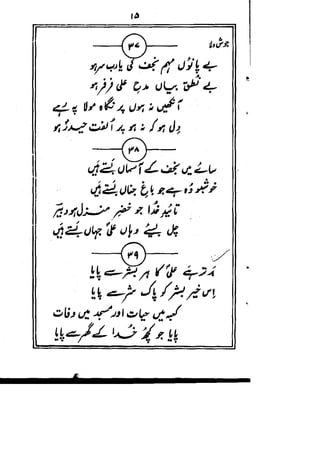 ۱۵
جوشِ ولا
۳۷
بے پانوں مہم نجف کی یارب سر ہو
بے نطق بیاں مدحِ علی فر فر ہو
آنکھیں نہ ہوں پر نگاہ مولا پہ رہے
دل ہو کہ نہ ہو پر اُلفتِ حیدر ہو
۳۸
سائے میں نجف کے آسماں بستے ہیں
خوشبو وہ ہے جو باغِ جناں بستے ہیں
تائیدِ خدا جو خضرِ منزل ہو دبیر
چل بسیے وہاں علی جہاں بستے ہیں
۳۹
رتبہ علی کا ہر بشر سے پایا
اس خیرِ بشر کو پاک شر سے پایا
کعبہ میں حیات اور مسجد میں وفات
پایا جو کچھ خدا کے گھر سے پایا